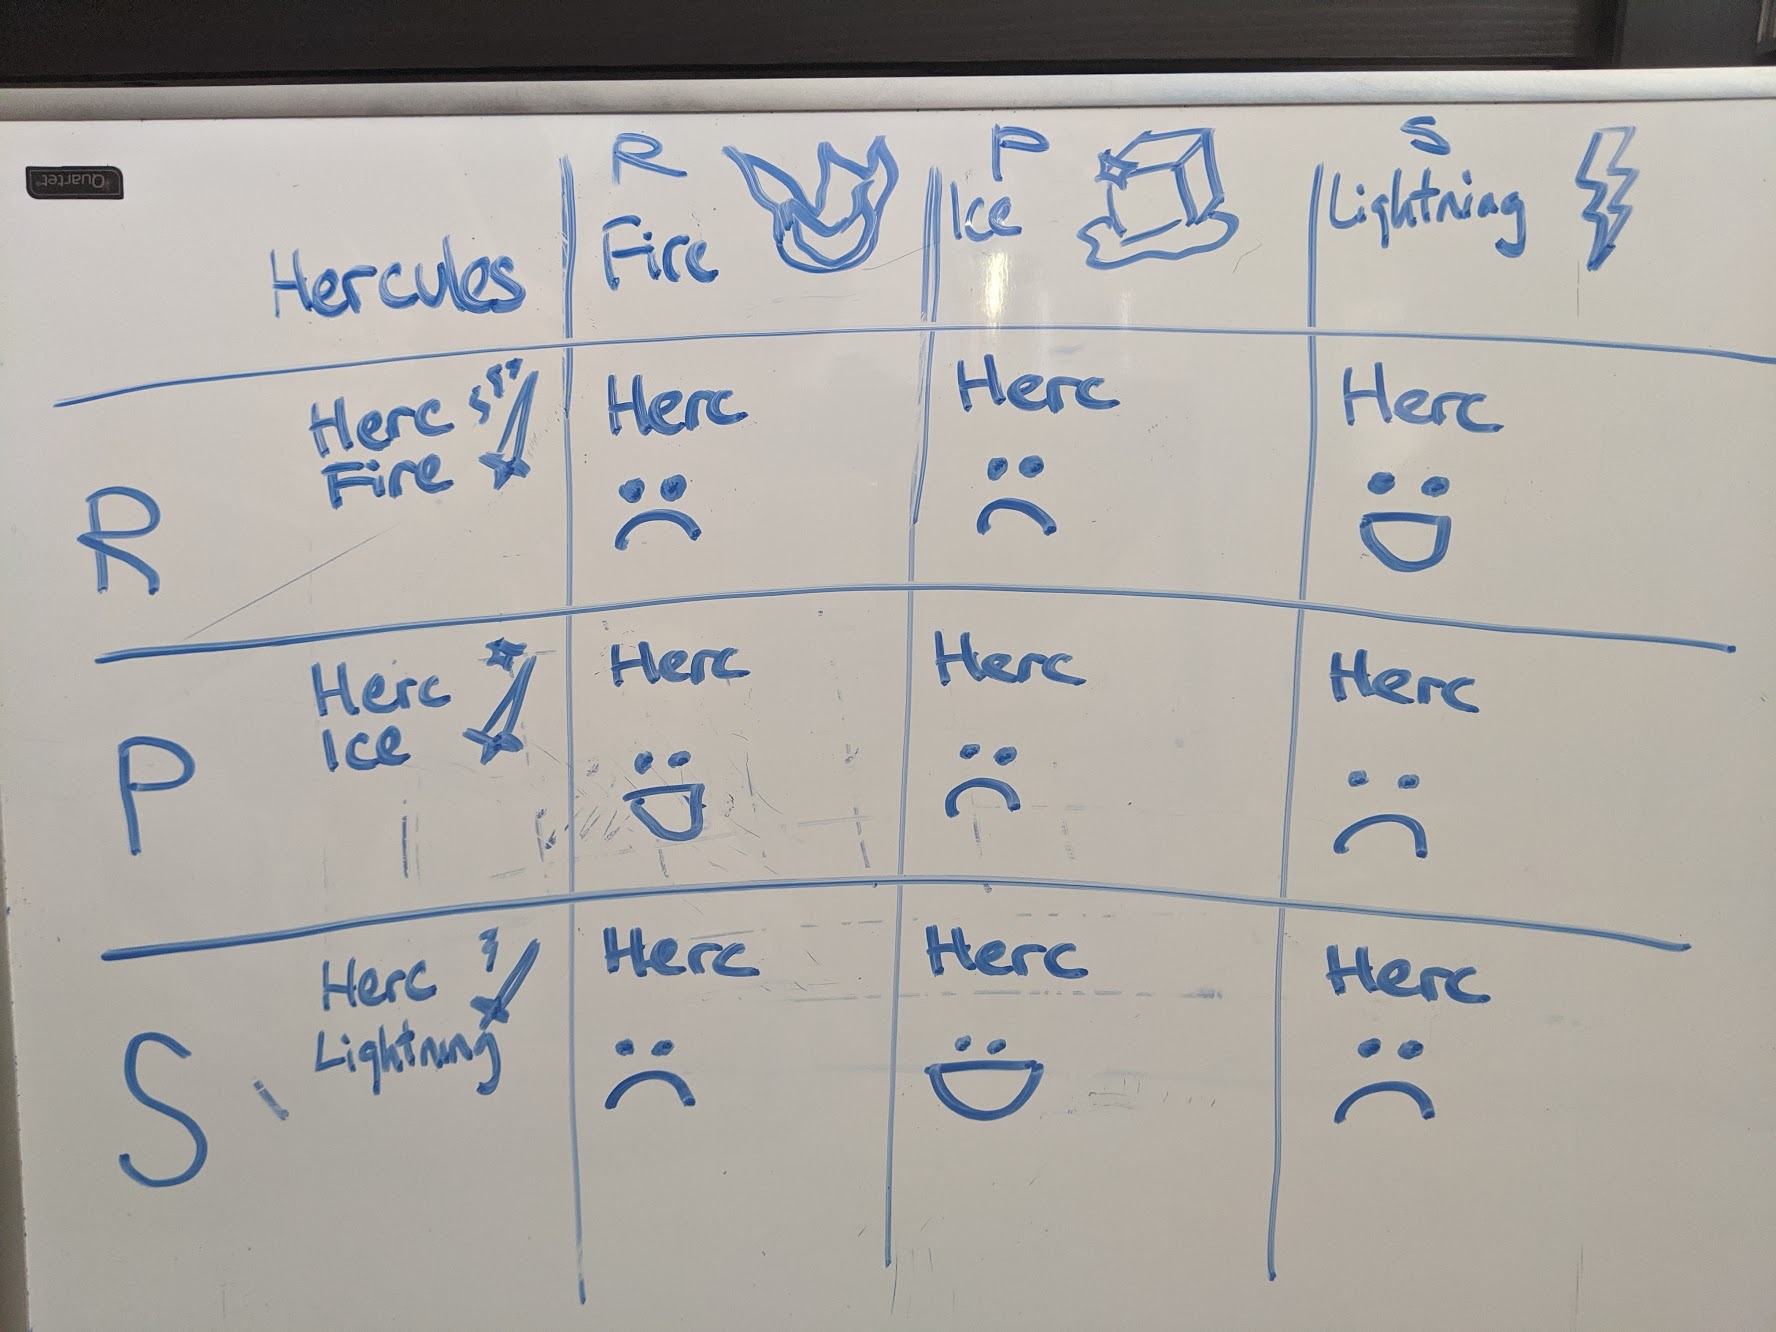 Quartet
R
P
S
Hercules
Fire
Ice
Lightning
R
Herc
Fire
Herc
Herc
Herc
P
Herc
Ice
Herc
Herc
Herc
S
Herc
Lightning
Herc
Herc
Herc